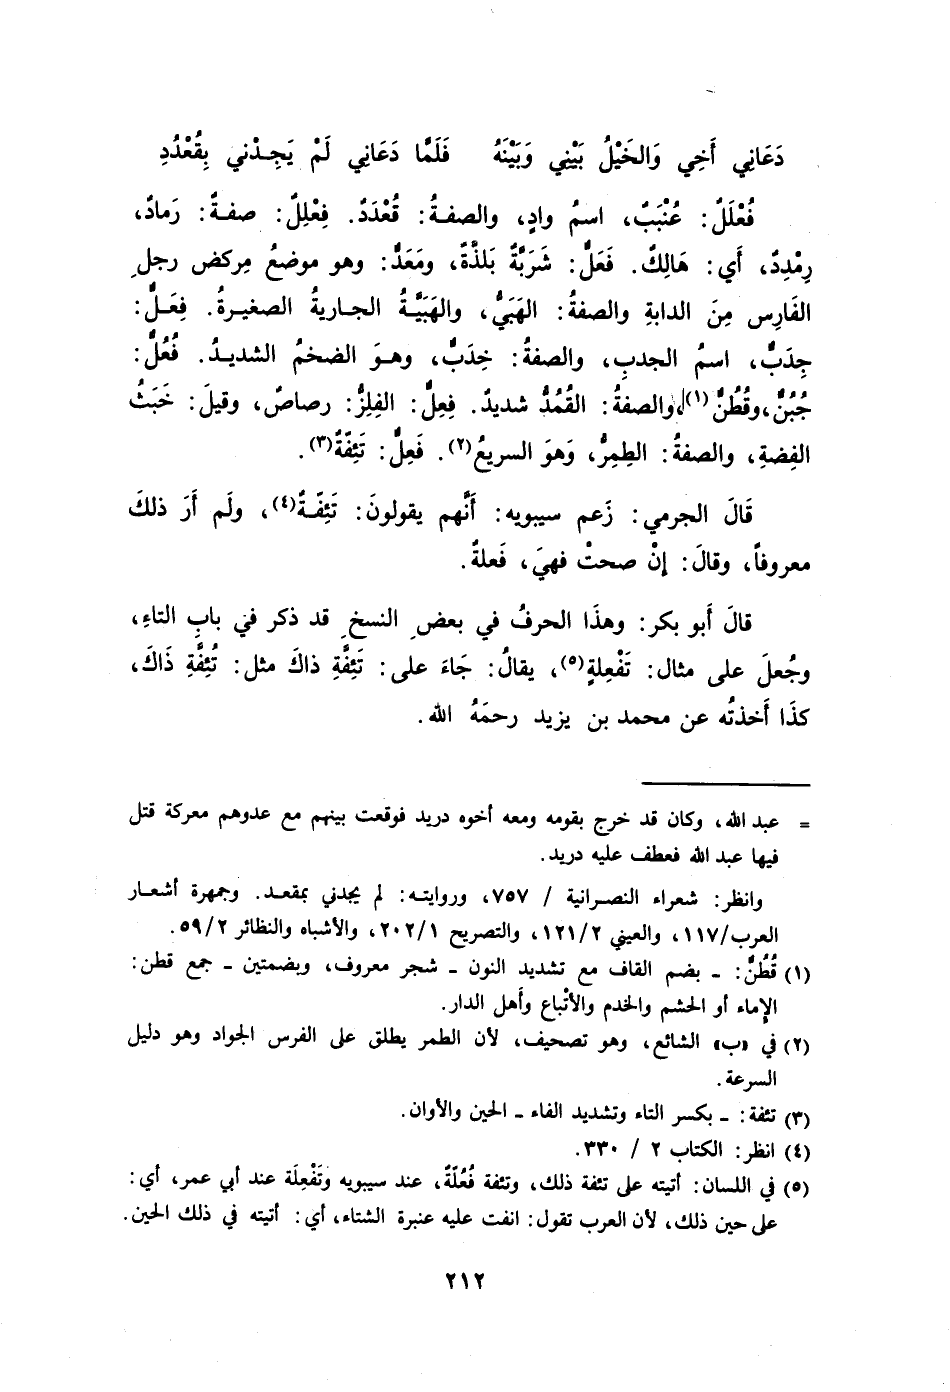 دَعَانِي أَخِي وَالخَيْلُ بَيْنِي وَبَيْنَهُ فَلَمَّا دَعَانِي لَمْ يَجِدْني بِقُعْدُدِ
فُعْلَلٌ: عُنْبَبٌ، اسمُ وادٍ، والصفةُ: قُعْدَدٌ. فِعْلِلٌ: صفةٌ: رَمادٌ،
رِمْدِدٌ، أَي: هَالِكٌ. فَعَلٌّ: شَرَبَّةٌ بَلدَّةٌ، ومَعَدٌّ: وهو موضعُ مِركض رجلِ
الفَارِس مِنَ الدابةِ والصفةُ: الهَبَيُّ، والهَبَيَّةُ الجاريةُ الصغيرةُ. فِعَلٌّ:
جِدَبٌّ، اسمُ الجدبِ، والصفةُ: خِدَبٌّ، وهوَ الضخمُ الشديدُ. فُعُلٌّ:
جُبُنٌّ، وقُطُنٌّ(١)، والصفةُ: القُمُدُّ شديدٌ. فِعِلٌّ: الفِلِزُّ: رصاصٌ، وقيلَ: خَبَثُ
الفِضةِ، والصفةُ: الطِمِرُّ، وَهوَ السريعُ(٢). فَعِلٌّ: تَئِفّةٌ(٣).
قَالَ الجرمي: زَعم سيبويه: أَنَّهم يقولونَ: تَئِفّةٌ(٤)، ولَم أَرَ ذلكَ
معروفاً، وقالَ: إنْ صحتْ فهيَ، فَعلةٌ.
قالَ أَبو بكر: وهذَا الحرفُ في بعضِ النسخِ قد ذكر في بابِ التاءِ،
وجُعلَ على مثال: تَفْعِلةٍ(٥)، يقالُ: جَاءَ على: تَئِفَّةِ ذاكَ مثل: تُئِفَّةِ ذَاكَ،
كذَا أَخذتُه عن محمد بن يزيد رحمَهُ الله.
= عبد الله، وكان قد خرج بقومه ومعه أخوه دريد فوقعت بينهم مع عدوهم معركة قتل
فيها عبد الله فعطف عليه دريد.
وانظر: شعراء النصرانية / ٧٥٧، وروايته: لم يجدني بمقعد. وجمهرة أشعار
العرب/١١٧، والعيني ١٢١/٢، والتصريح ٢٠٢/١، والأشباه والنظائر ٥٩/٢.
(١) قُطُنٌّ: ـ بضم القاف مع تشديد النون ـ شجر معروف، وبضمتين ـ جمع قطن:
الإِماء أو الحشم والخدم والأتْباع وأَهل الدار.
(٢) في «ب» الشائع، وهو تصحيف، لأن الطمر يطلق على الفرس الجواد وهو دليل
السرعة.
(٣) تئفة: ـ بكسر التاء وتشديد الفاء ـ الحين والأوان.
(٤) انظر: الكتاب ٢ / ٣٣٠.
(٥) في اللسان: أتيته على تئفة ذلك، وتئفة فُعُلّةٌ، عند سيبويه وتَفْعِلَة عند أبي عمر، أي:
على حين ذلك، لأن العرب تقول: انفت عليه عنبرة الشتاء، أي: أتيته في ذلك الحين.
٢١٢